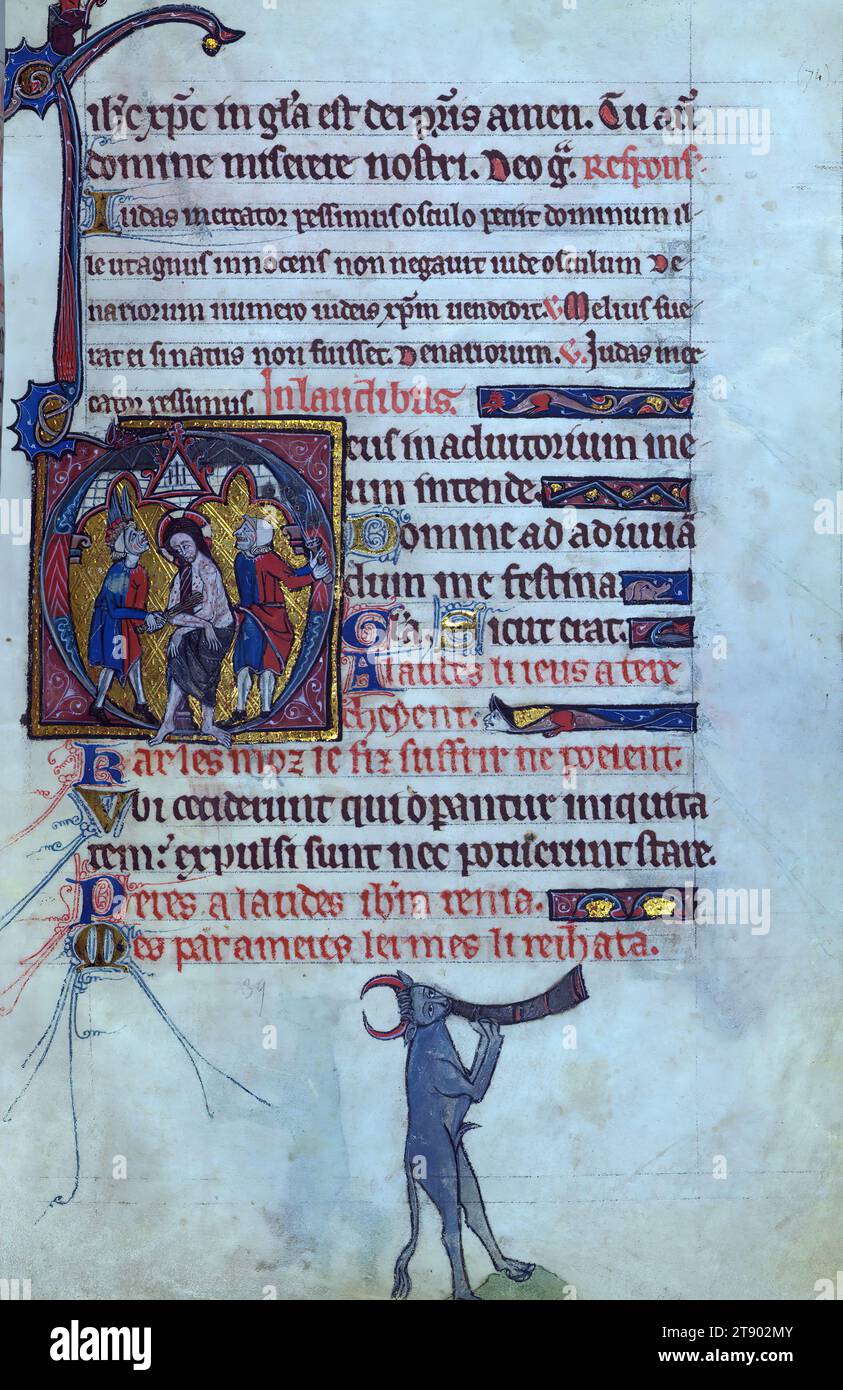 (74)
ih'c xp̄c in gl'a est dei p'ris amen. Tu au'
domine miserere nostri. Deo gr̄a. Respons'.
Iudas mercator pessimus osculo petiit dominum il-
le ut agnus innocens non negauit iude osculum De
nariorum numero iudeis xp̄m uendidit. V. Melius fue
rat ei si natus non fuisset. Denariorum. V. Judas mer
cator pessimus. In laudibus.
Deus in adiutorium me
um intende.
Domine ad adiuuā
dum me festina
Gl'a. Sicut erat.
A laudes li ieus a tere
cheyent.
Kar les moz le fiz suffrir ne poeient.
Vbi ceciderunt qui opantur iniquita
tem: expulsi sunt nec potuerunt stare.
Peres a laudes
Mes par
39
alamy
Image ID: 2T902MY
www.alamy.com